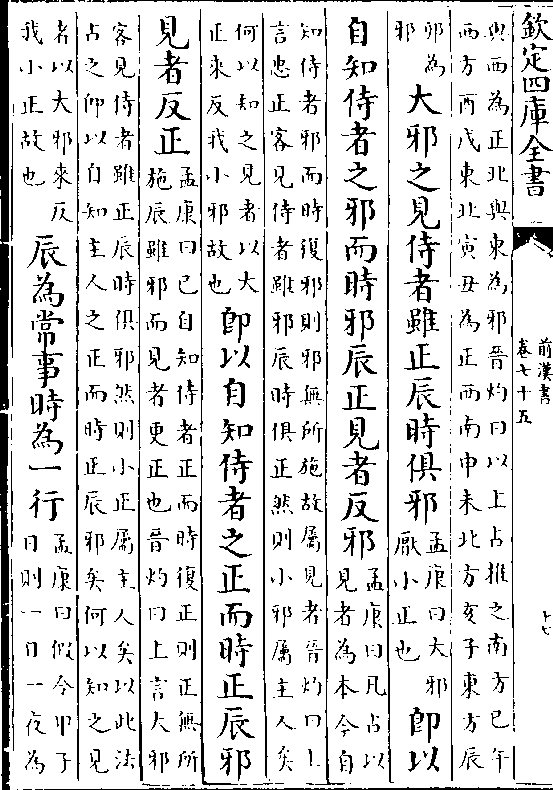 欽定四庫全書
前漢書
卷七十五
十七
與西為正北與東為邪晉灼曰以上占推之南方巳午
西方酉戌東北寅丑為正西南申未北方亥子東方辰
邪為
邪
大邪之見侍者雖正辰時俱邪
孟康曰大邪
厭小正也
即以
自知侍者之邪而時邪辰正見者反邪
孟康曰凡占以
見者為本今自
知侍者邪而時復邪則邪無所施故屬見者晉灼曰上
言忠正客見侍者雖邪辰時俱正然則小邪屬主人矣
何以知之見者以大
正來反我小邪故也
即以自知侍者之正而時正辰邪
見者反正
孟康曰已自知侍者正而時復正則正無所
施辰雖邪而見者更正也晉灼曰上言大邪
客見侍者雖正辰時俱邪然則小正屬主人矣以此法
占之即以自知主人之正而時正辰邪矣何以知之見
者以大邪來反
我小正故也
辰為常事時為一行
孟康曰假令甲子
日則一日一夜為